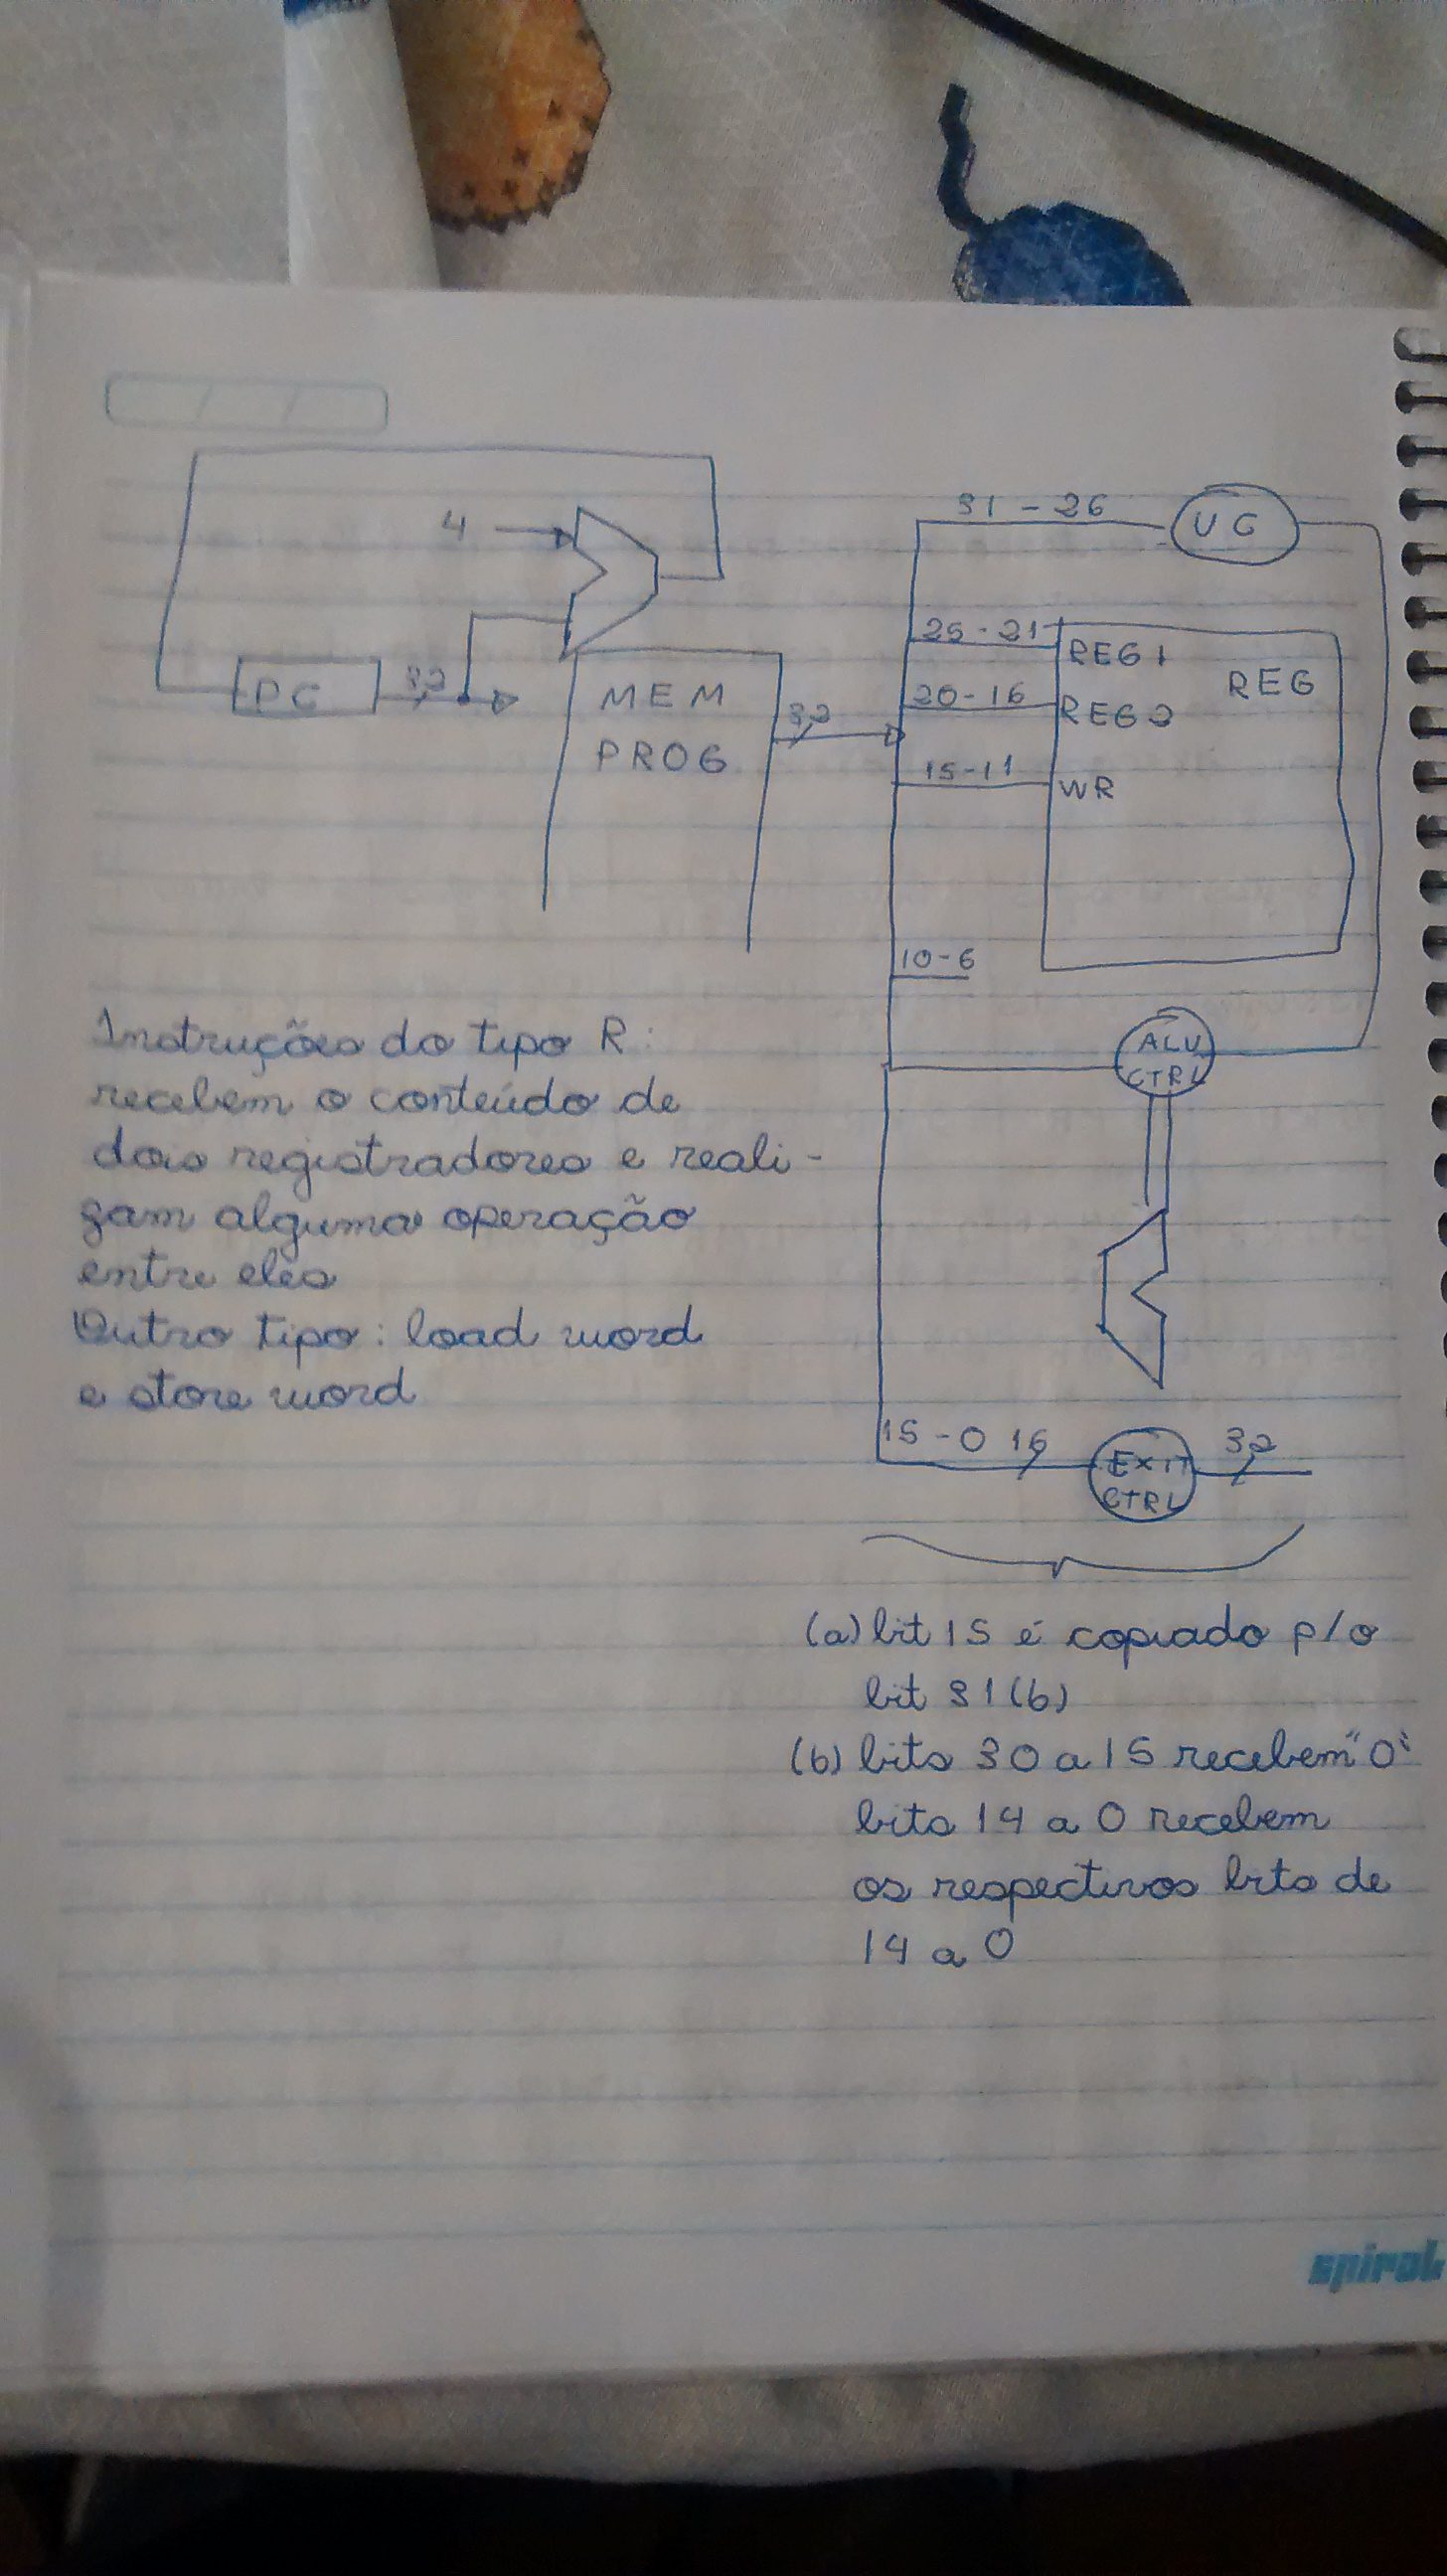 4
PC
32
MEM
PROG
32
31 - 26
UC
25 - 21
REG 1
REG
20 - 16
REG 2
15 - 11
WR
10 - 6
ALU
CTRL
15 - 0 16
EXIT
CTRL
32
Instruções do tipo R:
recebem o conteúdo de
dois registradores e reali -
zam alguma operação
entre eles
Outro tipo: load word
e store word
(a) bit 15 é copiado p/ o
bit 31 (b)
(b) bits 30 a 15 recebem "0"
bits 14 a 0 recebem
os respectivos bits de
14 a 0
spiral